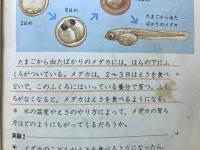 8日め
たまごから出た
ばかりのメダカ
たまごから出たばかりのメダカには、はらの下にふ
くろがついている。メダカは、2～3日はえさを食べ
ないで、このふくろにはいっている養分で育つ。ふく
ろがなくなると、メダカはえさを食べるようになる。
水の温度やえさのやり方によって、メダカの育ち
方はどのようにちがってくるだろうか。
実験2
メダカの子どもがえさを食べるようになったら、